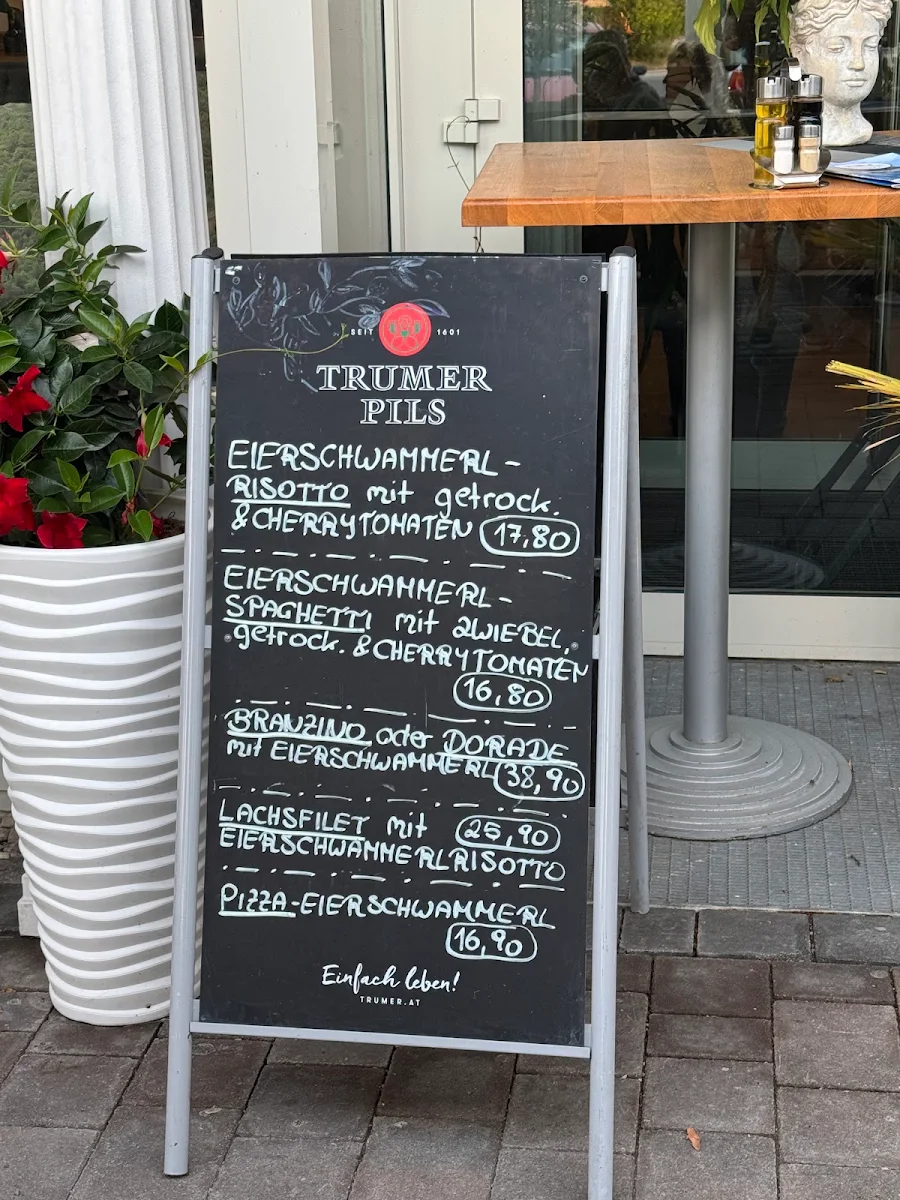 SEIT 1601
TRUMER
PILS
EIERSCHWAMMERL-
RISOTTO mit getrock.
& CHERRYTOMATEN 17,80
EIERSCHWAMMERL-
SPAGHETTI mit ZWIEBEL,
getrock. & CHERRYTOMATEN
16,80
BRANZINO oder DORADE
mit EIERSCHWAMMERL 38,90
LACHSFILET mit 25,90
EIERSCHWAMMERLRISOTTO
PIZZA-EIERSCHWAMMERL
16,90
Einfach leben!
TRUMER.AT